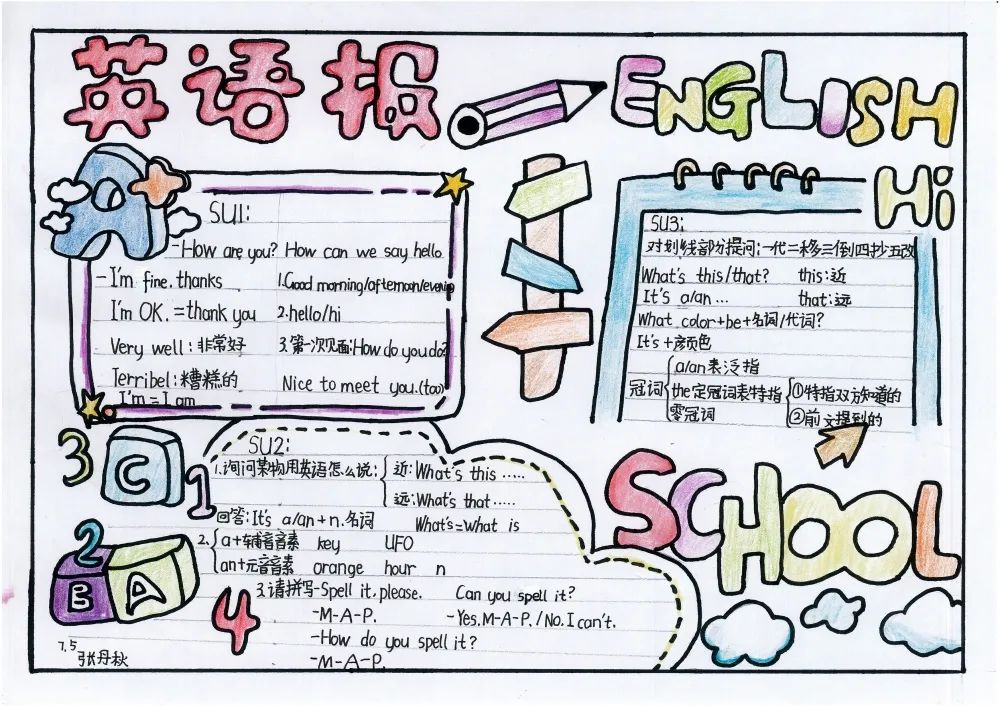 英语报
ENGLISH
Hi
A
SU1:
-How are you? How can we say hello
-I'm fine. thanks 1.Good morning/afternoon/evening
I'm OK. =thank you 2.hello/hi
Very well:非常好 3.第一次见面:How do you do?
Terribel:糟糕的 Nice to meet you.(too)
I'm = I am
SU3:
对划线部分提问:一代二移三倒四抄五改
What's this/that? this:近
It's a/an ... that:远
What color+be+名词/代词?
It's +颜色
冠词
a/an表泛指
the定冠词表特指
零冠词
①特指双方知道的
②前文提到的
3 C 1
2
B A
4
SU2:
1.询问某物用英语怎么说:
近:What's this .....
远:What's that .....
回答:It's a/an+n.名词 What's=what is
2.
a+辅音音素 key UFO
an+元音音素 orange hour n
3.请拼写-Spell it, please. Can you spell it?
-M-A-P. -Yes, M-A-P./No. I can't.
-How do you spell it?
-M-A-P.
SCHOOL
7.5
张丹秋